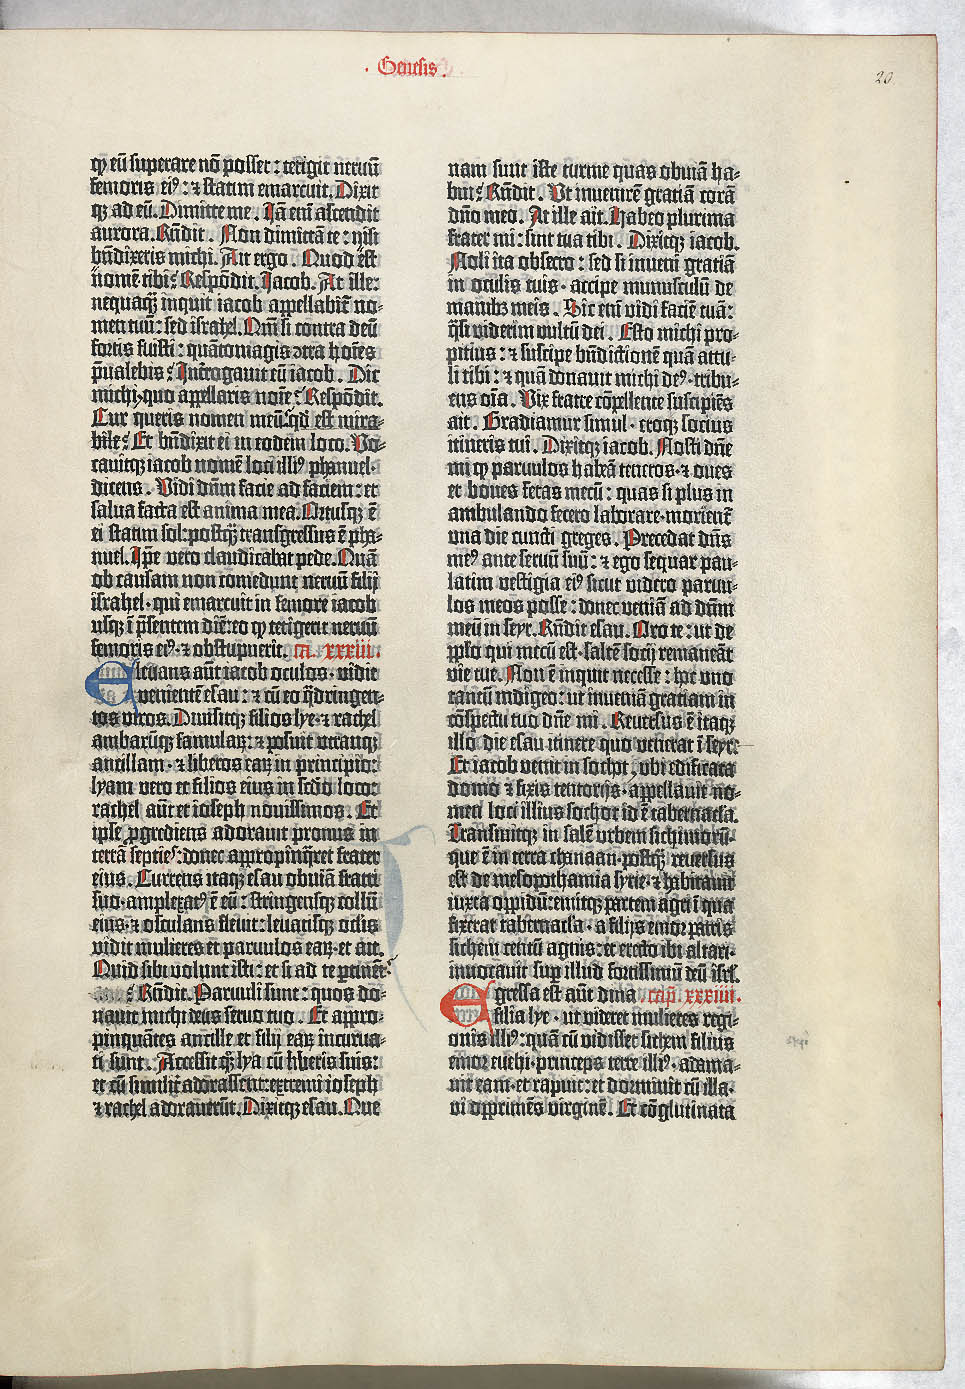 . Genesis .
20
qꝫ eū superare nō posset : tetigit neruū
femoris eiꝰ : ⁊ statim emarcuit. Dixit
qꝫ ad eū. Dimitte me . Jā em̄ ascendit
aurora. Rn̄dit . Non dimittā te : nisi
bn̄dixeris michi. Ait ergo . Quod est
nomē tibi? Respōdit. Jacob. At ille:
nequaqꝫ inquit iacob appellabit̄ no-
men tuū : sed israhel. Nm̄ si contra deū
fortis fuisti : quātomagis ↄtra hoīes
p̄ualebis? Int̄rogauit eū iacob . Dic
michi, quo appellaris noīe? Respōdit.
Cur queris nomen meū, qd̄ est mira-
bile? Et bn̄dixit ei in eodem loco. Vo-
cauitqꝫ iacob nomē loci illiꝰ phanuel·
dicens . Vidi dn̄m facie ad faciem : et
salua facta est anima mea. Ortusqꝫ ē
ei statim sol: postqꝫ transgressus ē pha-
nuel. Ip̄e vero claudicabat pede. Quā
ob causam non comedunt neruū filij
israhel · qui emarcuit in femore iacob
usqꝫ ī p̄sentem diē: eo qꝫ tetigerit neruū
femoris eiꝰ · ⁊ obstupuerit. ca. xxxiii.
Eleuans aūt iacob oculos · vidit
venientē esau : ⁊ cū eo q̄dringen-
tos viros. Diuisitqꝫ filios lye · ⁊ rachel
ambarūqꝫ famulaꝝ: ⁊ posuit utranqꝫ
ancillam · ⁊ liberos eaꝝ in principio:
lyam vero et filios eius in scd̄o loco:
rachel aūt et ioseph nouissimos . Et
ipse ꝓgrediens adorauit pronus in
terrā septieſ: donec appropinq̄ret frater
eius. Currens itaqꝫ esau obuiā fratri
suo · amplexatꝰ ē eū : stringensqꝫ collū
eius · ⁊ osculans fleuit : leuatisqꝫ oclis
vidit mulieres et paruulos eaꝝ · et ait.
Quid sibi volunt isti : et si ad te ꝑtinēt?
Rn̄dit. Paruuli sunt : quos do-
nauit michi deus seruo tuo . Et appro-
pinquātes ancille et filij eaꝝ incurua-
ti sunt . Accessit qꝫ lya cū liberis suis:
et cū similit̄ adorassent: extremi ioseph
⁊ rachel adorauerūt. Dixitqꝫ esau. Que
nam sunt iste turme quas obuiā ha-
bui? Rn̄dit. Ut inuenirē gratiā corā
dn̄o meo. At ille ait. Habeo plurima
frater mi : sint tua tibi . Dixitqꝫ iacob.
Noli ita obsecro : sed si inueni gratiā
in oculis tuis · accipe munusculū de
manibꝫ meis . Sic em̄ vidi faciē tuā:
q̄si viderim vultū dei . Esto michi pro-
pitius : ⁊ suscipe bn̄dictionē quā attu-
li tibi : ⁊ quā donauit michi deꝰ · tribu-
ens oīa. Vix fratre cōpellente suscipiēs
ait. Gradiamur simul · eroqꝫ socius
itineris tui. Dixitqꝫ iacob. Nosti dn̄e
mi qꝫ paruulos habeā teneros · ⁊ oues
et boues fetas mecū : quas si plus in
ambulando fecero laborare · morient̄
una die cuncti greges . Precedat dn̄s
meꝰ ante seruū suū : ⁊ ego sequar pau-
latim vestigia eiꝰ sicut videro paruu-
los meos posse : donec veniā ad dn̄m
meū in seyr. Rn̄dit esau. Oro te : ut de
pp̄lo qui mecū est · saltē socij remaneāt
vie tue. Non ē inquit necesse : hoc uno
tantū indigeo : ut inueniā gratiam in
cōspectu tuo dn̄e mi . Reuersus ē itaqꝫ
illo die esau itinere quo venerat ī seyr.
Et iacob venit in sochot , ubi edificata
domo ⁊ fixis tentorijs · appellauit no-
men loci illius sochot id ē tabernac̄la.
Transiuitqꝫ in salē urbem sichimorū ·
que ē in terra chanaan · postqꝫ reuersus
est de mesopothamia syrie · ⁊ habitauit
iuxta oppidū: emitqꝫ partem agri ī qua
fixerat tabernac̄la · a filijs emor patris
sichem centū agnis: et erecto ibi altari ·
inuocauit suꝑ illud fortissimū deū isrl̄.
Egressa est aūt dina cap̄. xxxiiii.
filia lye · ut videret mulieres regi-
onis illiꝰ: quā cū vidisset sichem filius
emor euehi · princeps terre illiꝰ · adama-
uit eam · et rapuit : et dormiuit cū illa ·
vi opprimēs virginē . Et cōglutinata